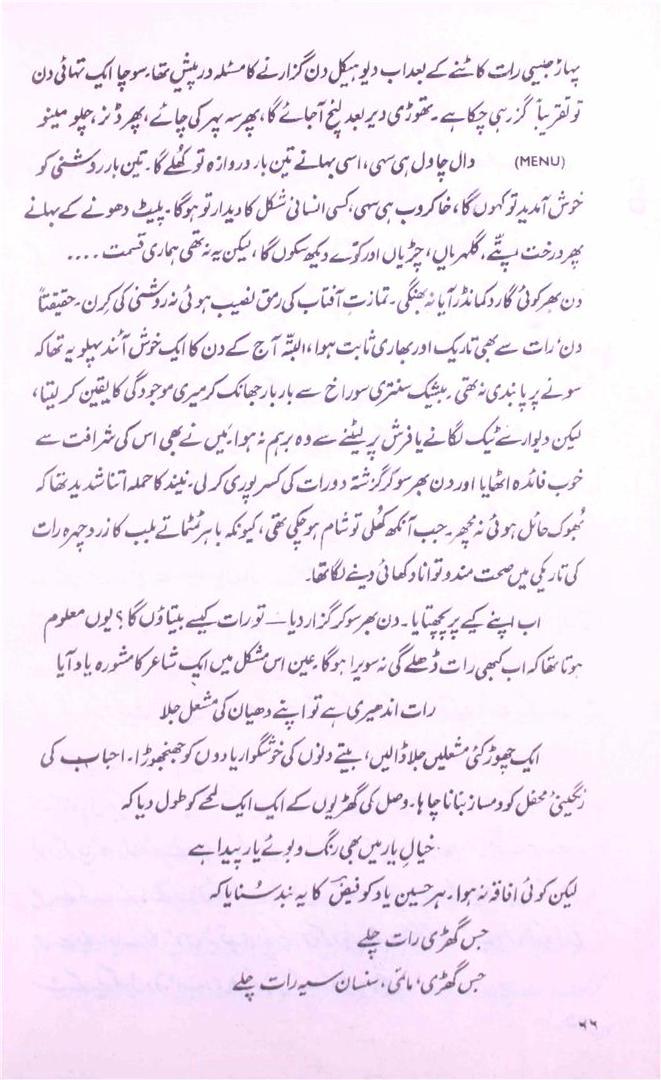 پہاڑ جیسی رات کاٹنے کے بعد اب دیو ہیکل دن گزارنے کا مسئلہ درپیش تھا۔ سوچا ایک تہائی دن
تو تقریباً گزر ہی چکا ہے۔ تھوڑی دیر بعد لنچ آجائے گا، پھر سہ پہر کی چائے، پھر ڈنر، چلو مینو
(MENU) دال چاول ہی سہی، اسی بہانے تین بار دروازہ تو کھلے گا۔ تین بار روشنی کو
خوش آمدید تو کہوں گا، خاکروب ہی سہی، کسی انسانی شکل کا دیدار تو ہوگا۔ پلیٹ دھونے کے بہانے
پھر درخت، پتّے، گلہریاں، چڑیاں اور کوّے دیکھ سکوں گا، لیکن یہ نہ تھی ہماری قسمت ....
دن بھر کوئی گارد کمانڈر آیا نہ بھنگی۔ تمازتِ آفتاب کی رمق نصیب ہوئی نہ روشنی کی کرن۔ حقیقتاً
دن رات سے بھی تاریک اور بھاری ثابت ہوا، البتہّ آج کے دن کا ایک خوش آئند پہلو یہ تھا کہ
سونے پر پابندی نہ تھی۔ بیشک سنتری سوراخ سے بار بار جھانک کر میری موجودگی کا یقین کر لیتا،
لیکن دیوار سے ٹیک لگانے یا فرش پر لیٹنے سے وہ برہم نہ ہوا، میں نے بھی اس کی شرافت سے
خوب فائدہ اٹھایا اور دن بھر سو کر گزشتہ دو رات کی کسر پوری کر لی۔ نیند کا حملہ اتنا شدید تھا کہ
بُھوک حائل ہوئی نہ مچھر۔ جب آنکھ کھلی تو شام ہو چکی تھی، کیونکہ باہر ٹمٹماتے بلب کا زرد چہرہ رات
کی تاریکی میں صحت مند و توانا دکھائی دینے لگا تھا۔
اب اپنے کیے پر پچھتایا۔ دن بھر سو کر گزار دیا — تو رات کیسے بیتاؤں گا؟ یوں معلوم
ہوتا تھا کہ اب کبھی رات ڈھلے گی نہ سویرا ہوگا۔ عین اس مشکل میں ایک شاعر کا مشورہ یاد آیا
رات اندھیری ہے تو اپنے دھیان کی مشعل جلا
ایک چھوڑ کئی مشعلیں جلا ڈالیں، بیتے دنوں کی خوشگوار یادوں کو جھنجھوڑا۔ احباب کی
رنگینیٔ محفل کو دمساز بنانا چاہا۔ وصل کی گھڑیوں کے ایک ایک لمحے کو طول دیا کہ
خیالِ یار میں بھی رنگ و بوئے یار پیدا ہے
لیکن کوئی افاقہ نہ ہوا۔ ہر حسین یاد کو فیضؔ کا یہ بند سُنایا کہ
جس گھڑی رات چلے
جس گھڑی، ماتمی، سنسان سیہ رات چلے
۶۶